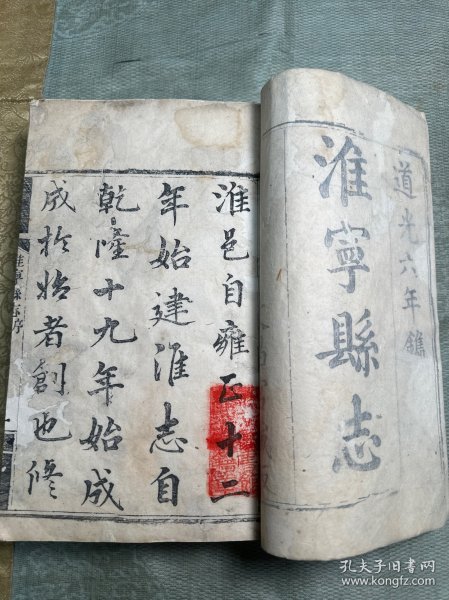 道光六年鐫
淮寧縣志
淮邑自雍正十二
年始建淮志自
乾隆十九年始成
成於始者創也修
淮寧縣志序
孔夫子旧书网
www.kongfz.com